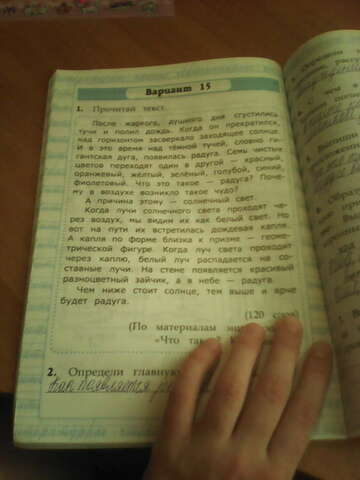 Вариант 15
1. Прочитай текст.
После жаркого, душного дня сгустились
тучи и полил дождь. Когда он прекратился,
над горизонтом засверкало заходящее солнце.
И в это время над тёмной тучей, словно ги-
гантская дуга, появилась радуга. Семь чистых
цветов переходят один в другой — красный,
оранжевый, жёлтый, зелёный, голубой, синий,
фиолетовый. Что это такое — радуга? Поче-
му в воздухе возникло такое чудо?
А причина этому — солнечный свет.
Когда лучи солнечного света проходят че-
рез воздух, мы видим их как белый свет. Но
вот на пути их встретилась дождевая капля.
А капля по форме близка к призме — геоме-
трической фигуре. Когда луч света проходит
через каплю, белый луч распадается на со-
ставные лучи. На стене появляется красивый
разноцветный зайчик, а в небе — радуга.
Чем ниже стоит солнце, тем выше и ярче
будет радуга.
(120 слов)
(По материалам
«Что
2. Определи главную
Как появляется